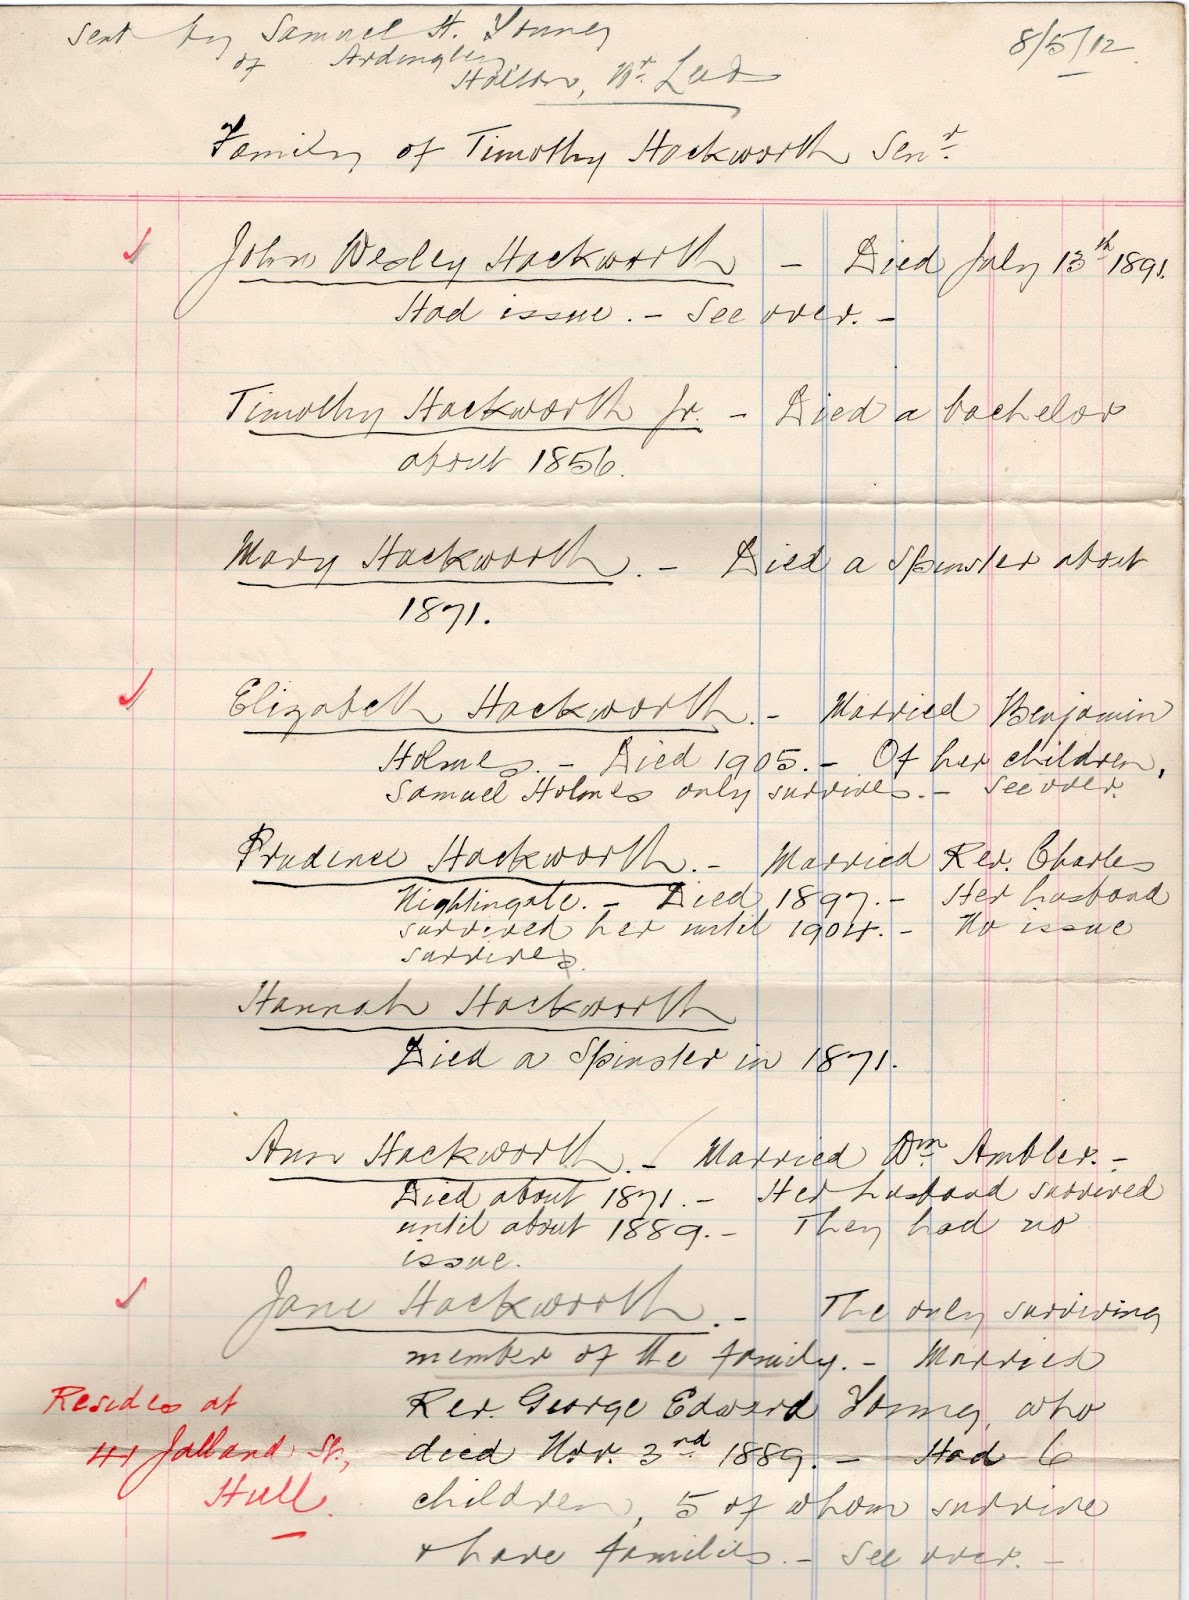 Sent by Samuel H. Young
of Ardingley,
Halton, Nr. Leeds
8/5/12
Family of Timothy Hackworth Senr.
John Wesley Hackworth - Died July 13th 1891.
Had issue. - See over. -
Timothy Hackworth Jr. - Died a bachelor
about 1856.
Mary Hackworth. - Died a Spinster about
1871.
Elizabeth Hackworth. - Married Benjamin
Holmes. - Died 1905. - Of her children,
Samuel Holmes only survives. - See over.
Prudence Hackworth. - Married Rev. Charles
Nightingale. - Died 1897. - Her husband
survived her until 1904. - No issue
survives.
Hannah Hackworth
Died a Spinster in 1871.
Ann Hackworth. - Married Wm. Ambler. -
Died about 1871. - Her husband survived
until about 1889. - They had no
issue.
Jane Hackworth. - The only surviving
member of the family. - Married
Resides at
41 Jalland St.,
Hull.
Rev. George Edward Young, who
died Nov. 3rd 1889. - Had 6
children, 5 of whom survive
& have families. - See over. -